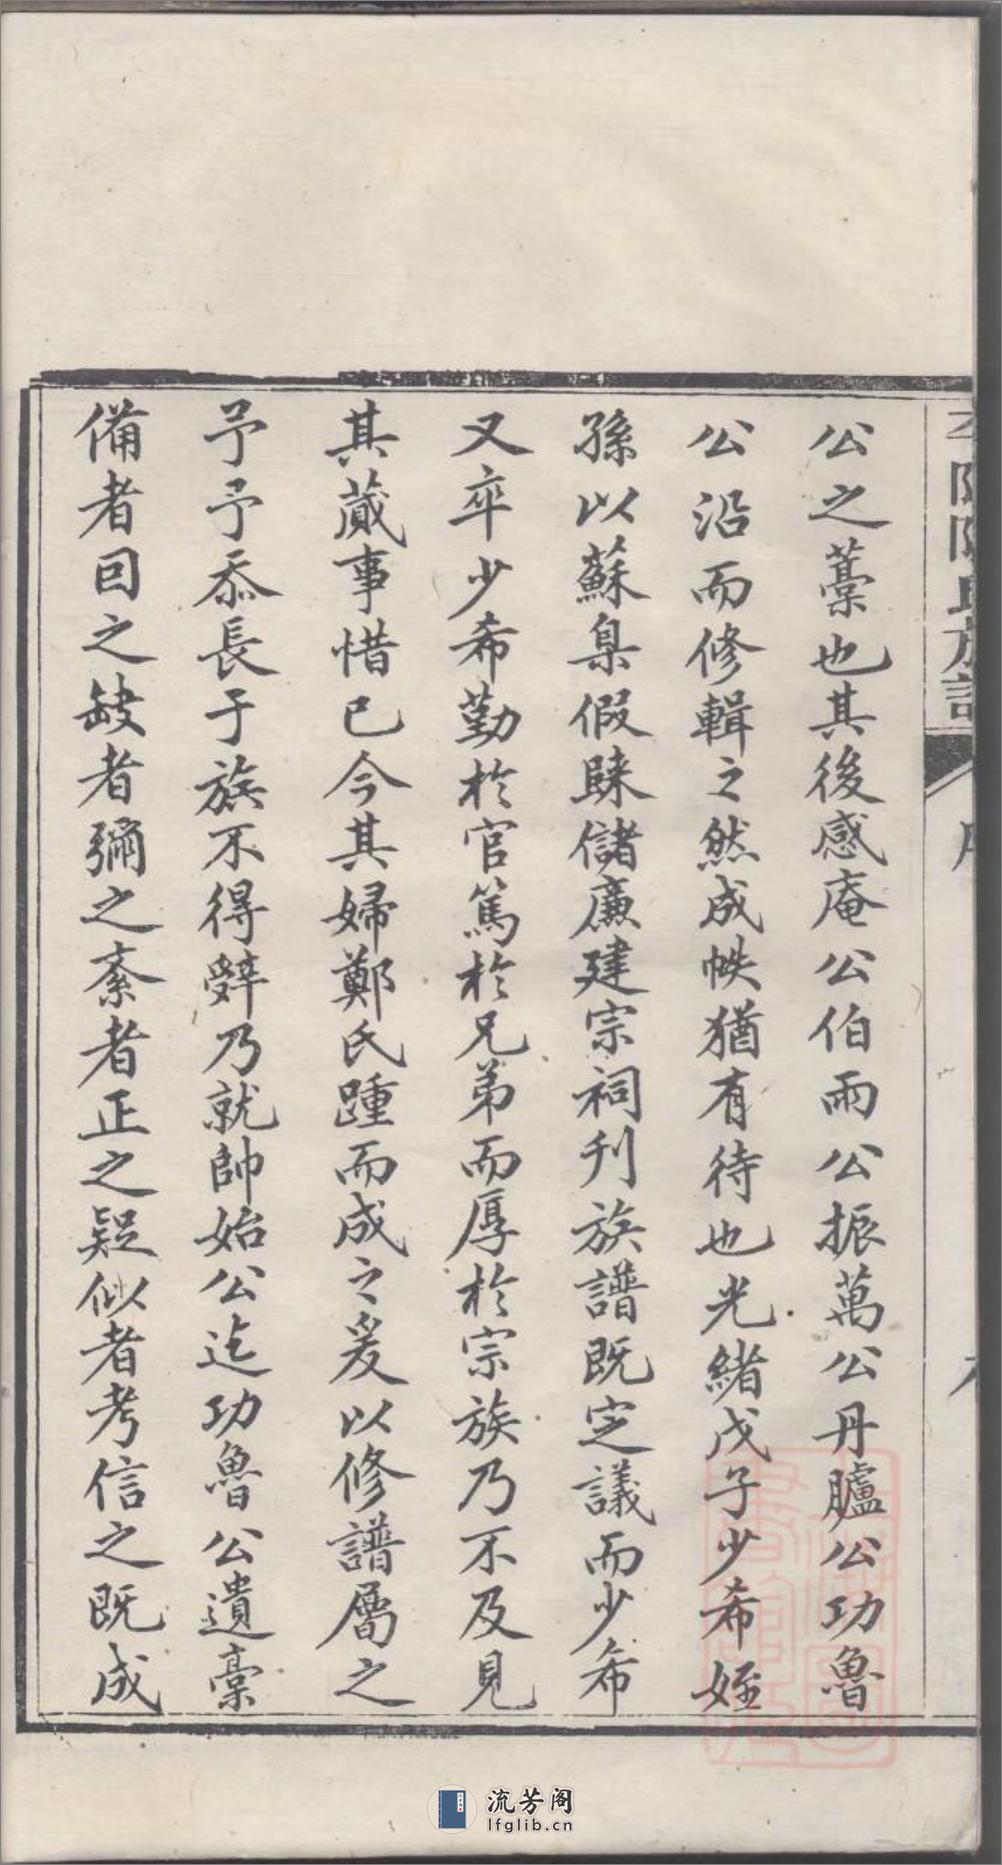 公之藁也其後感庵公伯雨公振萬公丹臚公功魯
公沿而修輯之然成帙猶有待也光緒戊子少希姪
孫以蘇臬假歸儲廉建宗祠刋族譜既定議而少希
又卒少希勤於官篤於兄弟而厚於宗族乃不及見
其蕆事惜已今其婦鄭氏踵而成之爰以修譜屬之
予予忝長于族不得辤乃就帥始公迄功魯公遺稾
備者因之缺者彌之紊者正之疑似者考信之既成
氏族譜
流芳阁
lfglib.cn